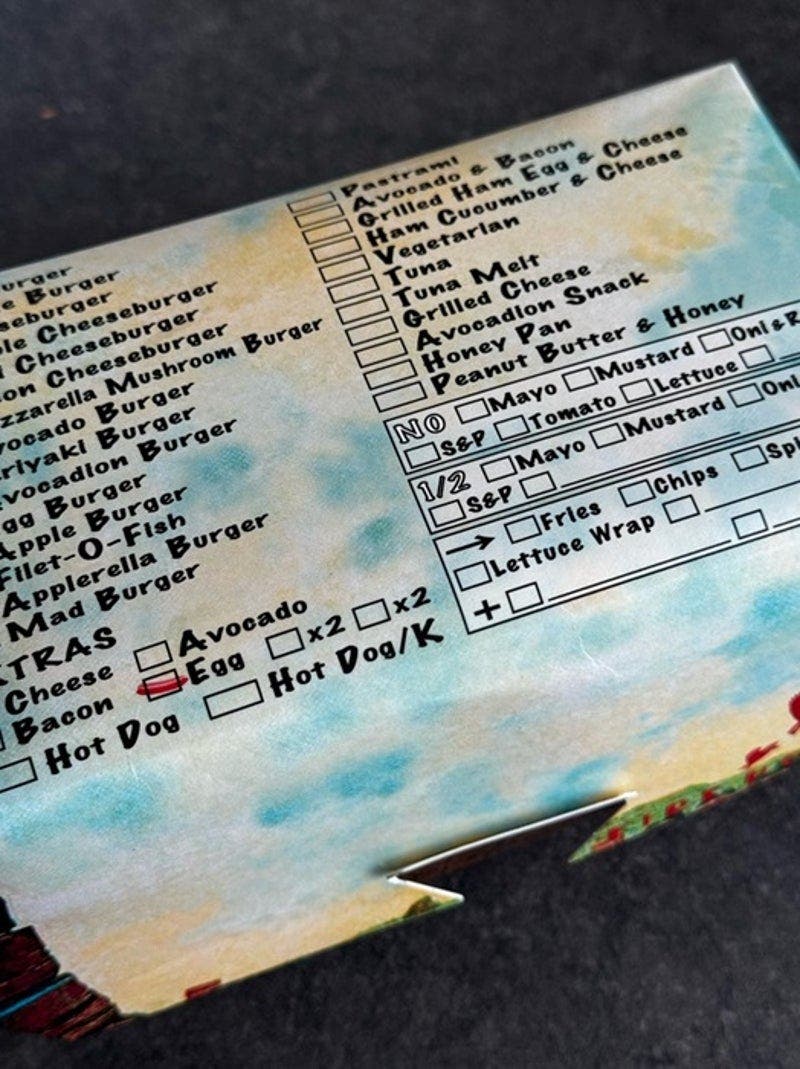 Pastrami
Avocado & Bacon
Grilled Ham Egg & Cheese
Ham Cucumber & Cheese
Vegetarian
Tuna
Tuna Melt
Grilled Cheese
Avocadion Snack
Honey Pan
Peanut Butter & Honey
urger
e Burger
seburger
ble Cheeseburger
i Cheeseburger
on Cheeseburger
zzarella Mushroom Burger
vocado Burger
riyaki Burger
vocadion Burger
gg Burger
Apple Burger
Filet-O-Fish
Applerella Burger
Mad Burger
XTRAS
Avocado
Cheese
Egg x2 x2
Bacon
Hot Dog Hot Dog/K
NO Mayo Mustard Oni & R
S&P Tomato Lettuce
1/2 Mayo Mustard Oni
S&P
→ Fries Chips Spl
Lettuce Wrap
+